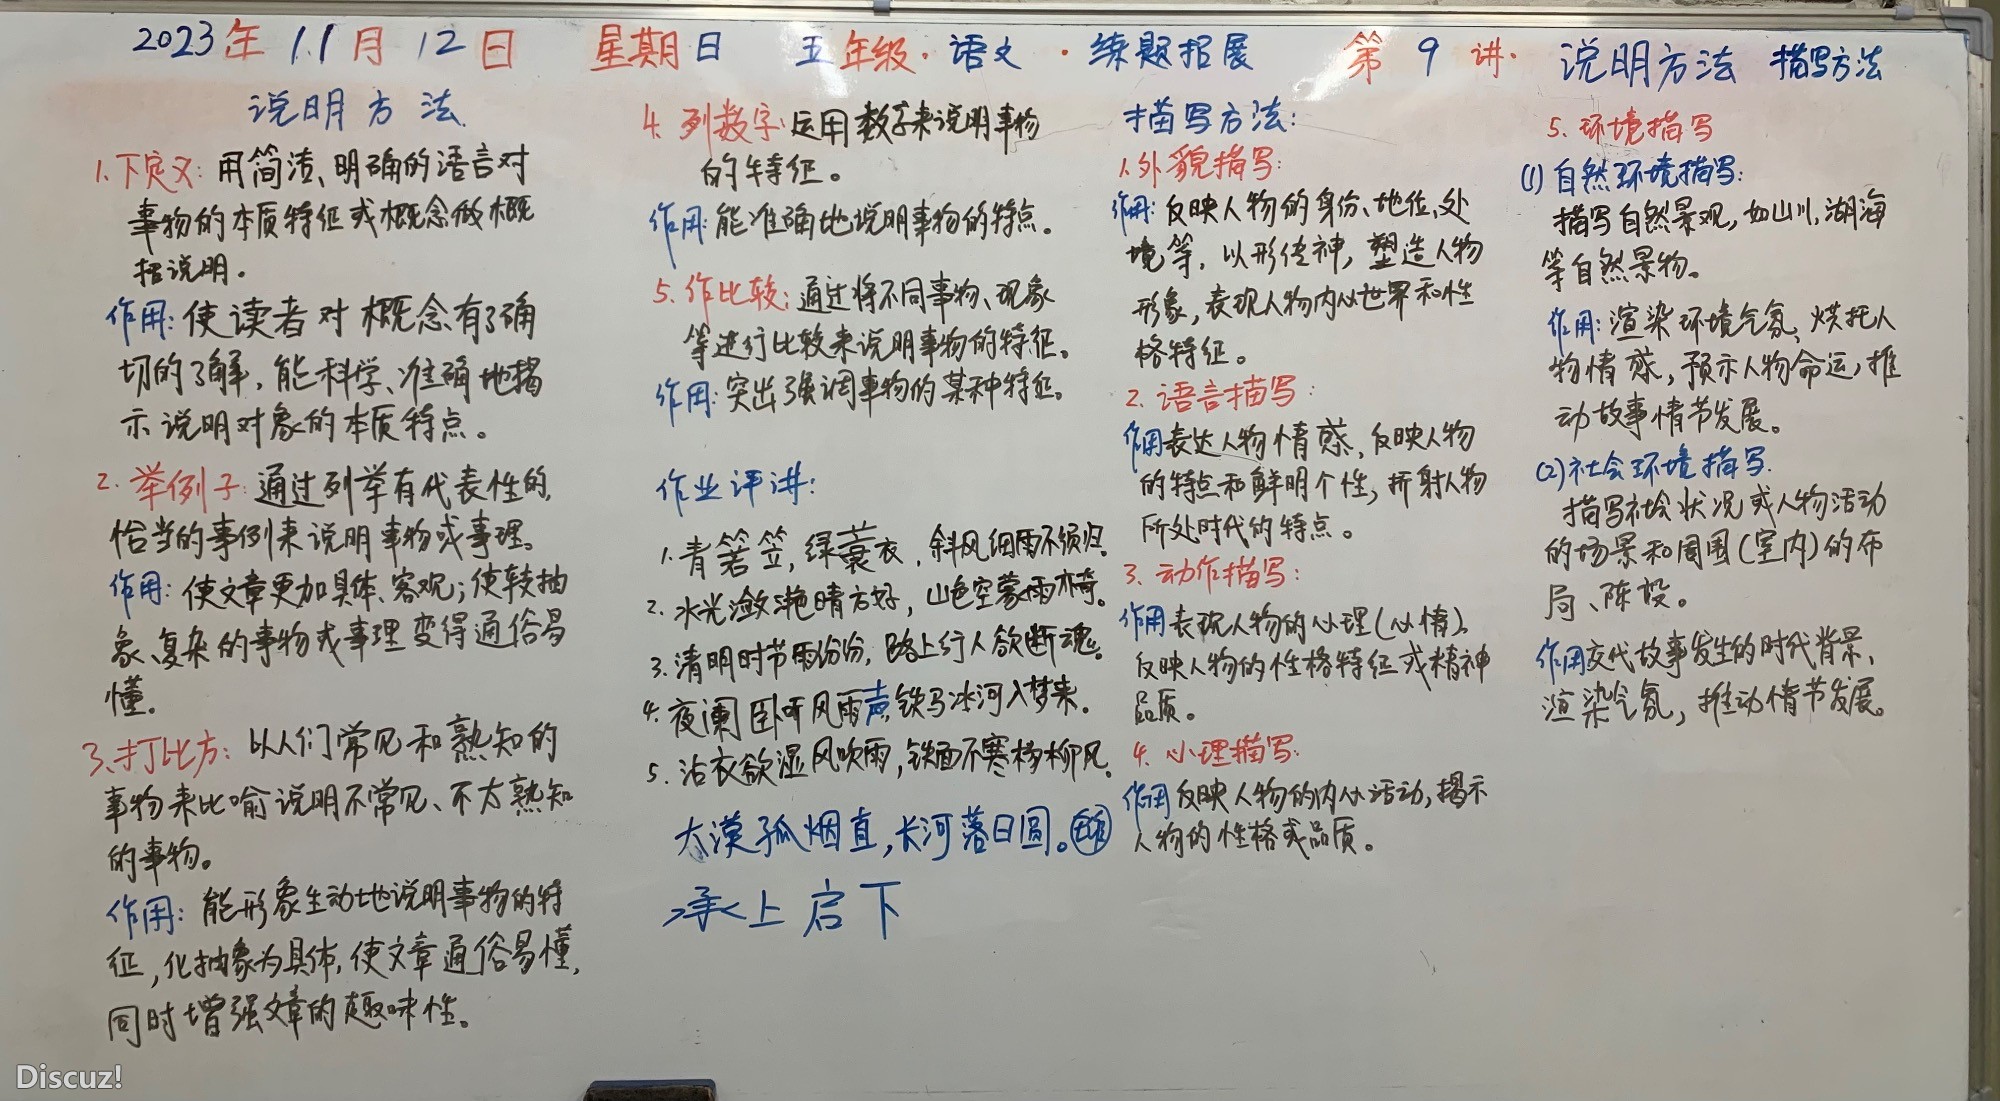 2023年11月12日 星期日 五年级·语文·练题拓展 第9讲·说明方法 描写方法
说明方法
1.下定义:用简洁、明确的语言对
事物的本质特征或概念做概
括说明。
作用:使读者对概念有了确
切的了解,能科学、准确地揭
示说明对象的本质特点。
2.举例子:通过列举有代表性的,
恰当的事例来说明事物或事理。
作用:使文章更加具体、客观;使较抽
象、复杂的事物或事理变得通俗易
懂。
3.打比方:以人们常见和熟知的
事物来比喻说明不常见、不太熟知
的事物。
作用:能形象生动地说明事物的特
征,化抽象为具体,使文章通俗易懂,
同时增强文章的趣味性。
4.列数字:运用数字来说明事物
的特征。
作用:能准确地说明事物的特点。
5.作比较:通过将不同事物、现象
等进行比较来说明事物的特征。
作用:突出强调事物的某种特征。
作业评讲:
1.青箬笠,绿蓑衣,斜风细雨不须归。
2.水光潋滟晴方好,山色空蒙雨亦奇。
3.清明时节雨纷纷,路上行人欲断魂。
4.夜阑卧听风雨声,铁马冰河入梦来。
5.沾衣欲湿 风吹雨,铁面不寒杨柳风。
大漠孤烟直,长河落日圆。
承上启下
描写方法:
1.外貌描写:
作用:反映人物的身份、地位、处
境等,以形传神,塑造人物
形象,表现人物内心世界和性
格特征。
2.语言描写:
作用表达人物情感,反映人物
的特点和鲜明个性,折射人物
所处时代的特点。
3.动作描写:
作用表现人物的心理(心情)、
反映人物的性格特征或精神
品质。
4.心理描写:
作用反映人物的内心活动,揭示
人物的性格或品质。
5.环境描写
(1)自然环境描写:
描写自然景观,如山川,湖海
等自然景物。
作用:渲染环境气氛、烘托人
物情感,预示人物命运,推
动故事情节发展。
(2)社会环境描写.
描写社会状况或人物活动
的场景和周围(室内)的布
局、陈设。
作用交代故事发生的时代背景,
渲染气氛,推动情节发展。
Discuz!